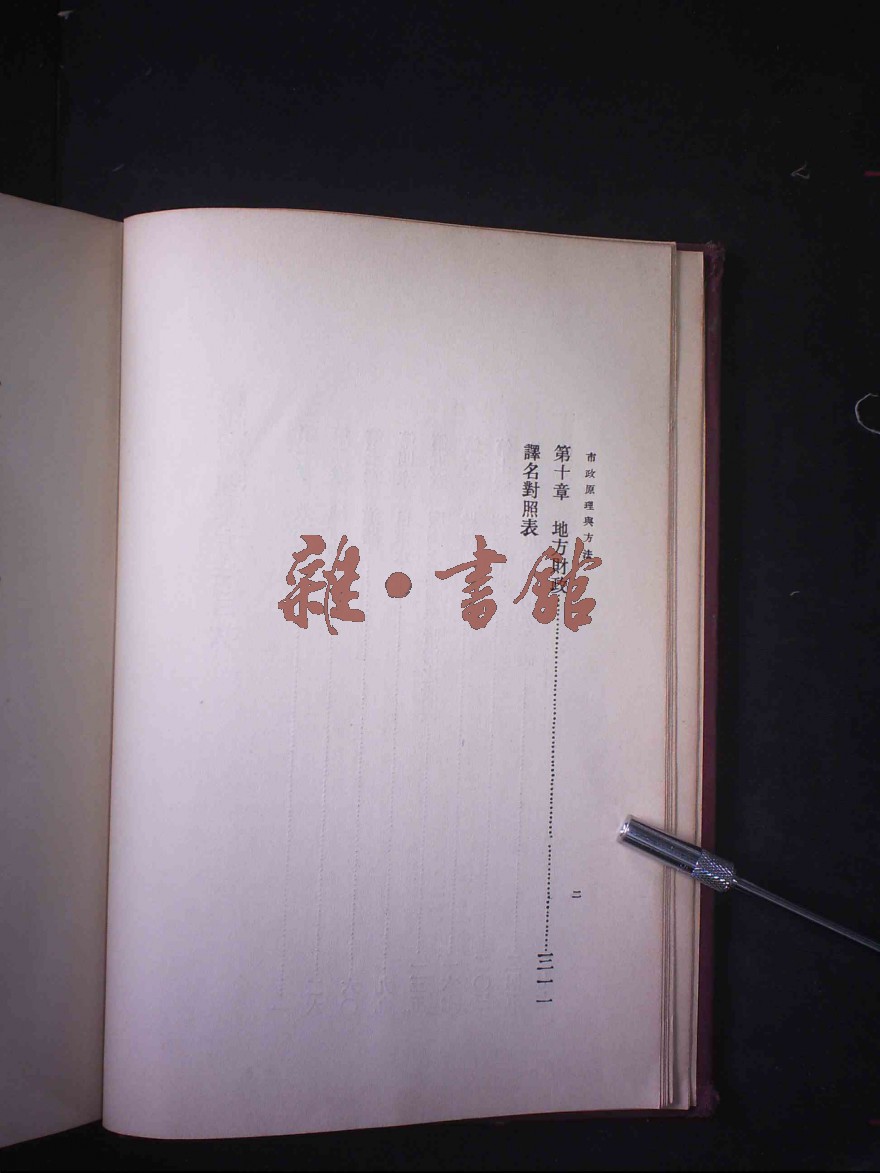 市政原理與方法
第十章　地方財政……………………………………三一一
譯名對照表
二
雜•書館